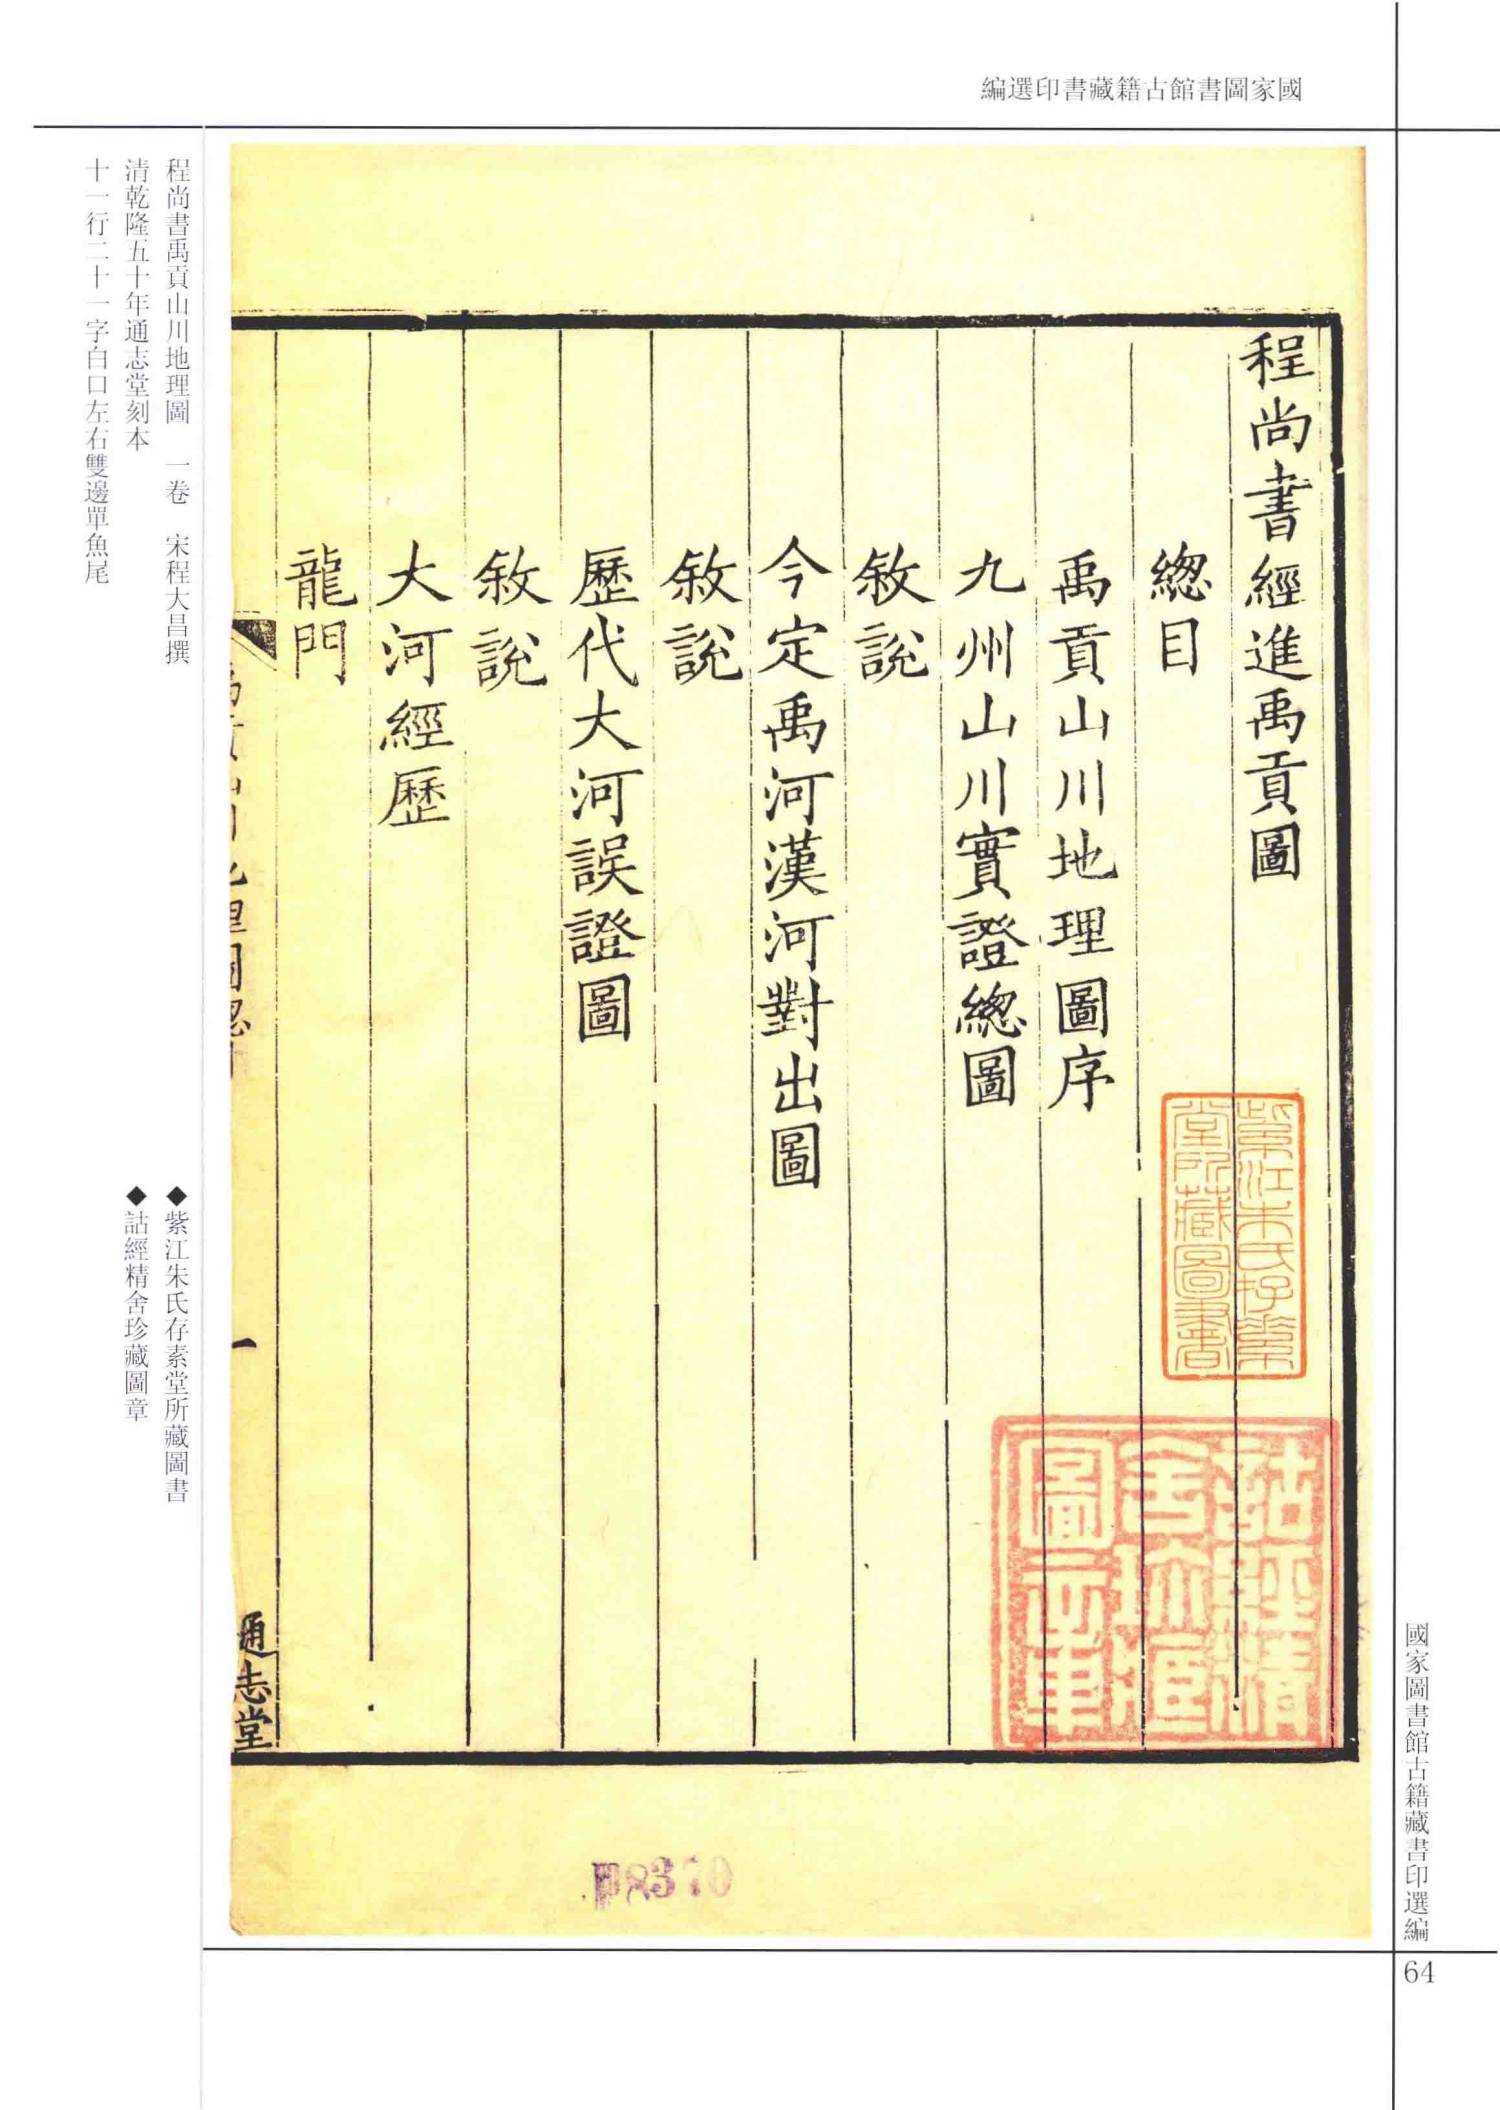 編選印書藏籍古館書圖家國
程尚書經進禹貢圖
總目
禹貢山川地理圖序
九州山川實證總圖
敘說
今定禹河漢河對出圖
敘說
歷代大河誤證圖
敘說
大河經歷
龍門
通志堂
一
紫江朱氏存素
堂所藏圖書
詁經精
舍珍藏
圖章
程尚書禹貢山川地理圖　一卷　宋程大昌撰
清乾隆五十年通志堂刻本
十一行二十一字白口左右雙邊單魚尾
◆紫江朱氏存素堂所藏圖書
◆詁經精舍珍藏圖章
國家圖書館古籍藏書印選編
64